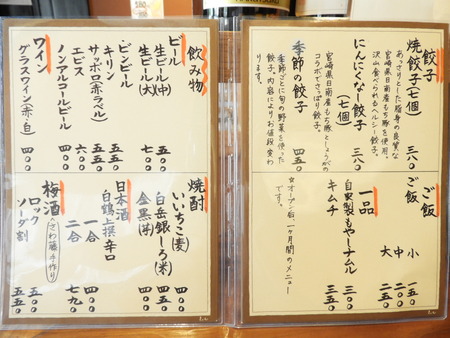 餃子
焼餃子(七個) 三八〇
あっさりとした脂身の良質な
宮崎県日南産もち豚を使用。
沢山食べられるヘルシー餃子。
にんにくなー餃子
(七個) 三八〇
宮崎県日南産もち豚としょうがの
コラボでさっぱり餃子。
季節の餃子 四五〇
季節ごとに旬の野菜を使った
餃子。内容によりお値段変わ
ります。
ご飯
ご飯 小 一五〇
中 二〇〇
大 二五〇
一品
自家製もやしナムル 三五〇
キムチ 三五〇
☆オープン後、一ヶ月間のメニュー
です。
飲み物
ビール
生ビール(中) 五五〇
生ビール(大) 七〇〇
ビンビール
キリン 五五〇
サッポロ(赤ラベル) 五五〇
エビス 六〇〇
ノンアルコールビール 四〇〇
ワイン
グラスワイン(赤・白) 四〇〇
焼酎
いいちこ(麦) 四〇〇
白岳銀しろ(米) 四〇〇
金黒(芋) 四〇〇
日本酒
白鶴上撰辛口
一合 四〇〇
二合 七九〇
梅酒 (さわ藤手作り)
ロック 五〇〇
ソーダ割 五五〇